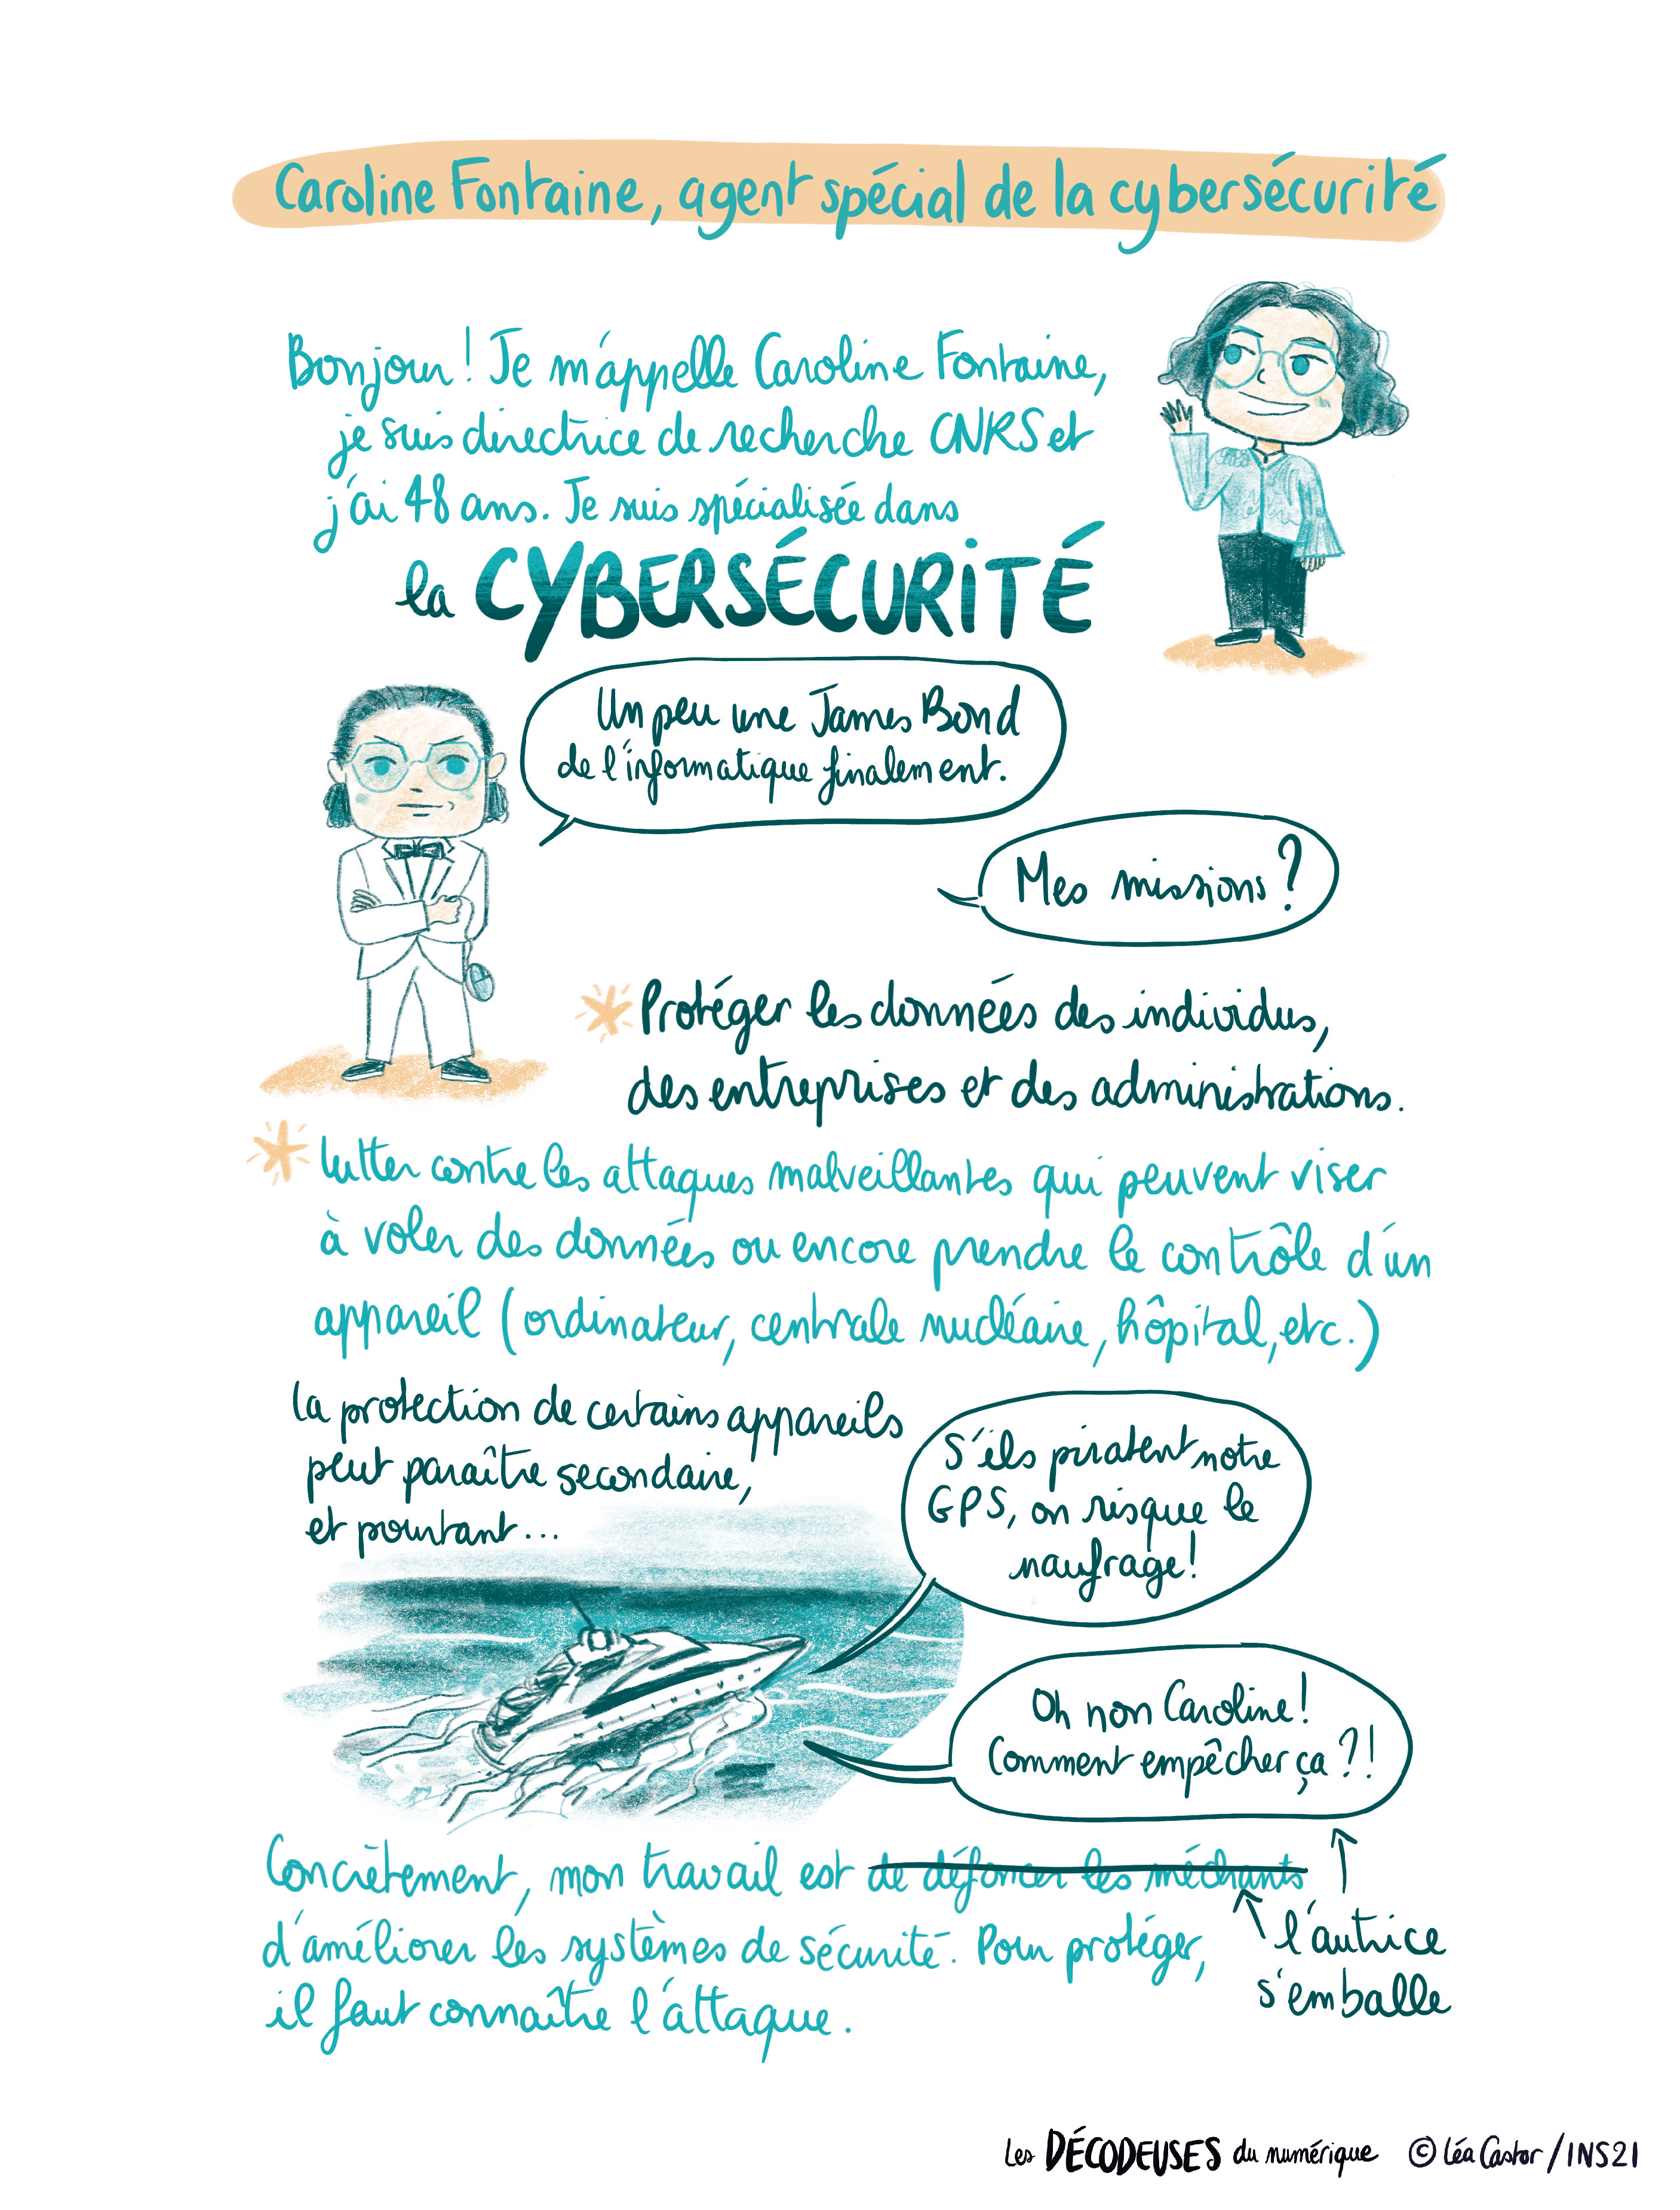 Caroline Fontaine, agent spécial de la cybersécurité
Bonjour ! Je m'appelle Caroline Fontaine,
je suis directrice de recherche CNRS et
j'ai 48 ans. Je suis spécialisée dans
la CYBERSÉCURITÉ
Un peu une James Bond
de l'informatique finalement.
Mes missions ?
* Protéger les données des individus,
des entreprises et des administrations.
* lutter contre les attaques malveillantes qui peuvent viser
à voler des données ou encore prendre le contrôle d'un
appareil (ordinateur, centrale nucléaire, hôpital, etc.)
la protection de certains appareils
peut paraître secondaire,
et pourtant...
S'ils piratent notre
GPS, on risque le
naufrage !
Oh non Caroline !
Comment empêcher ça ?!
Concrètement, mon travail est de défoncer les méchants
d'améliorer les systèmes de sécurité. Pour protéger,
il faut connaître l'attaque.
l'autrice
s'emballe
Les DÉCODEUSES du numérique © Léa Castor / INS2I